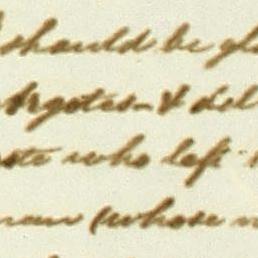 should be gl
Argotes - & del
ste who left
man (whose n